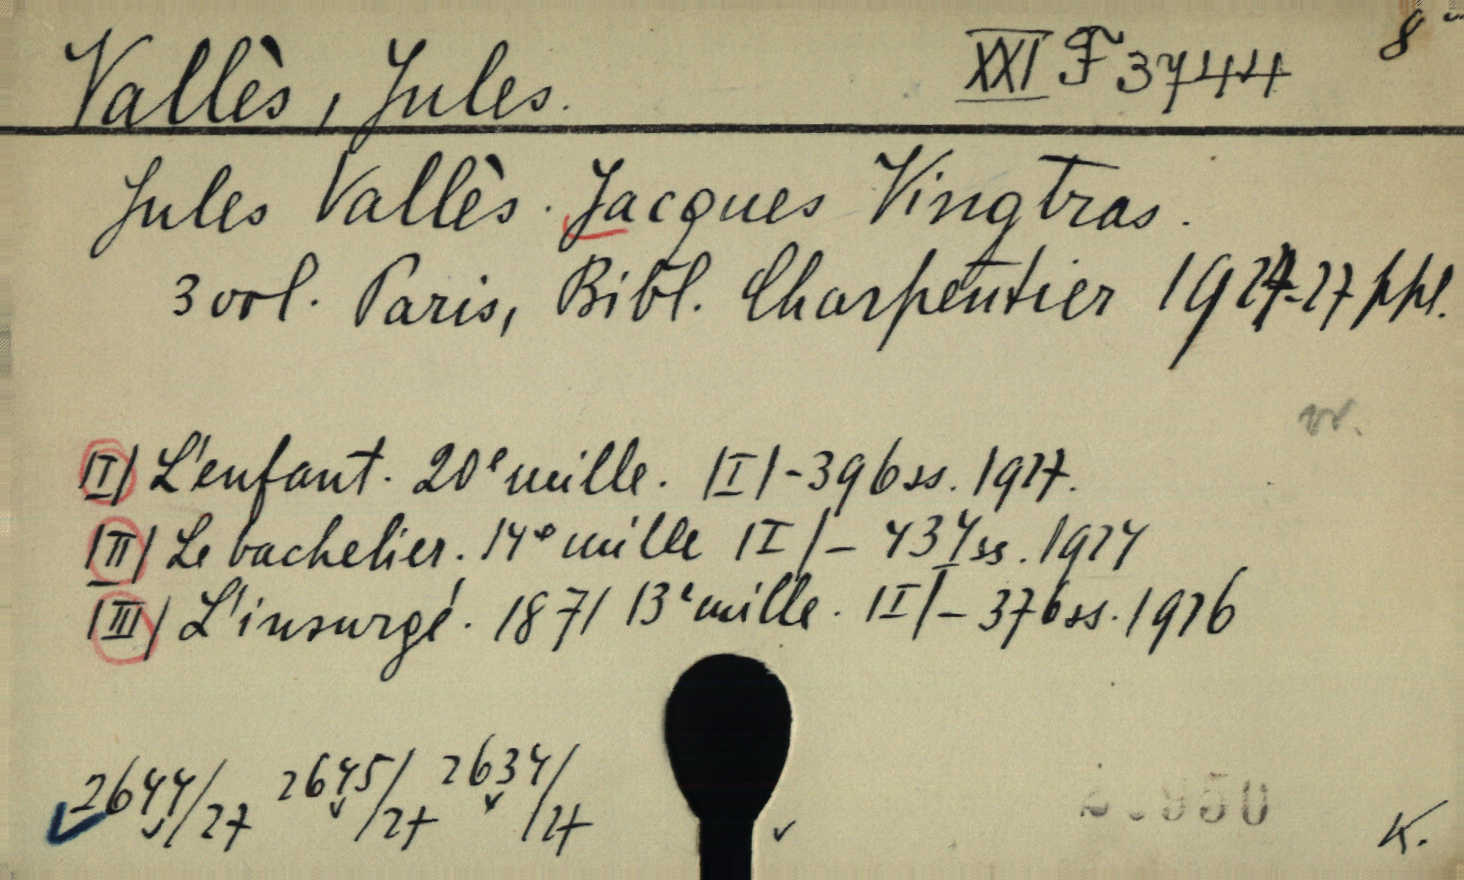 Vallès, Jules. XXI F 3744 8°
Jules Vallès. Jacques Vingtras.
3 vol. Paris, Bibl. Charpentier 1924-27 ppl.
|I| L'enfant. 20e mille. |I|-396 ss. 1927.
|II| Le bachelier. 14e mille |I|- 434 ss. 1924
|III| L'insurgé. 1871 13e mille. |I|- 376 ss. 1926
2644/27 2645/27 2634/27
K.